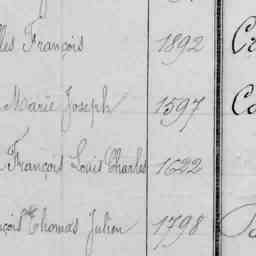 lles François 1892 Cr
Marie Joseph 1597 Co
François Louis Charles 1622
çois Thomas Julien 1798